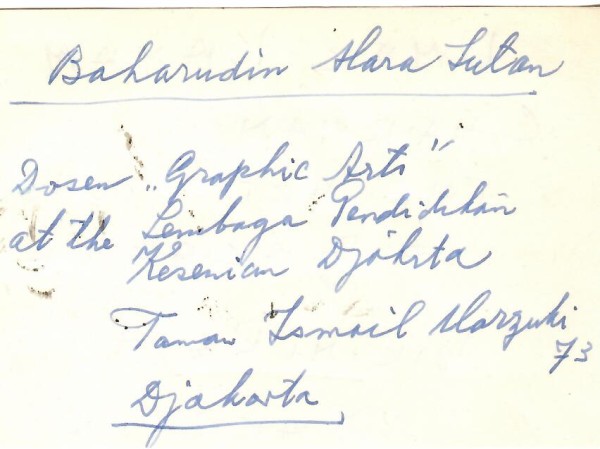 Baharudin Mara Sutan
Dosen „Graphic Arts"
at the Lembaga Pendidikan
Kesenian Djakrta
Taman Ismail Marzuki
73
Djakarta